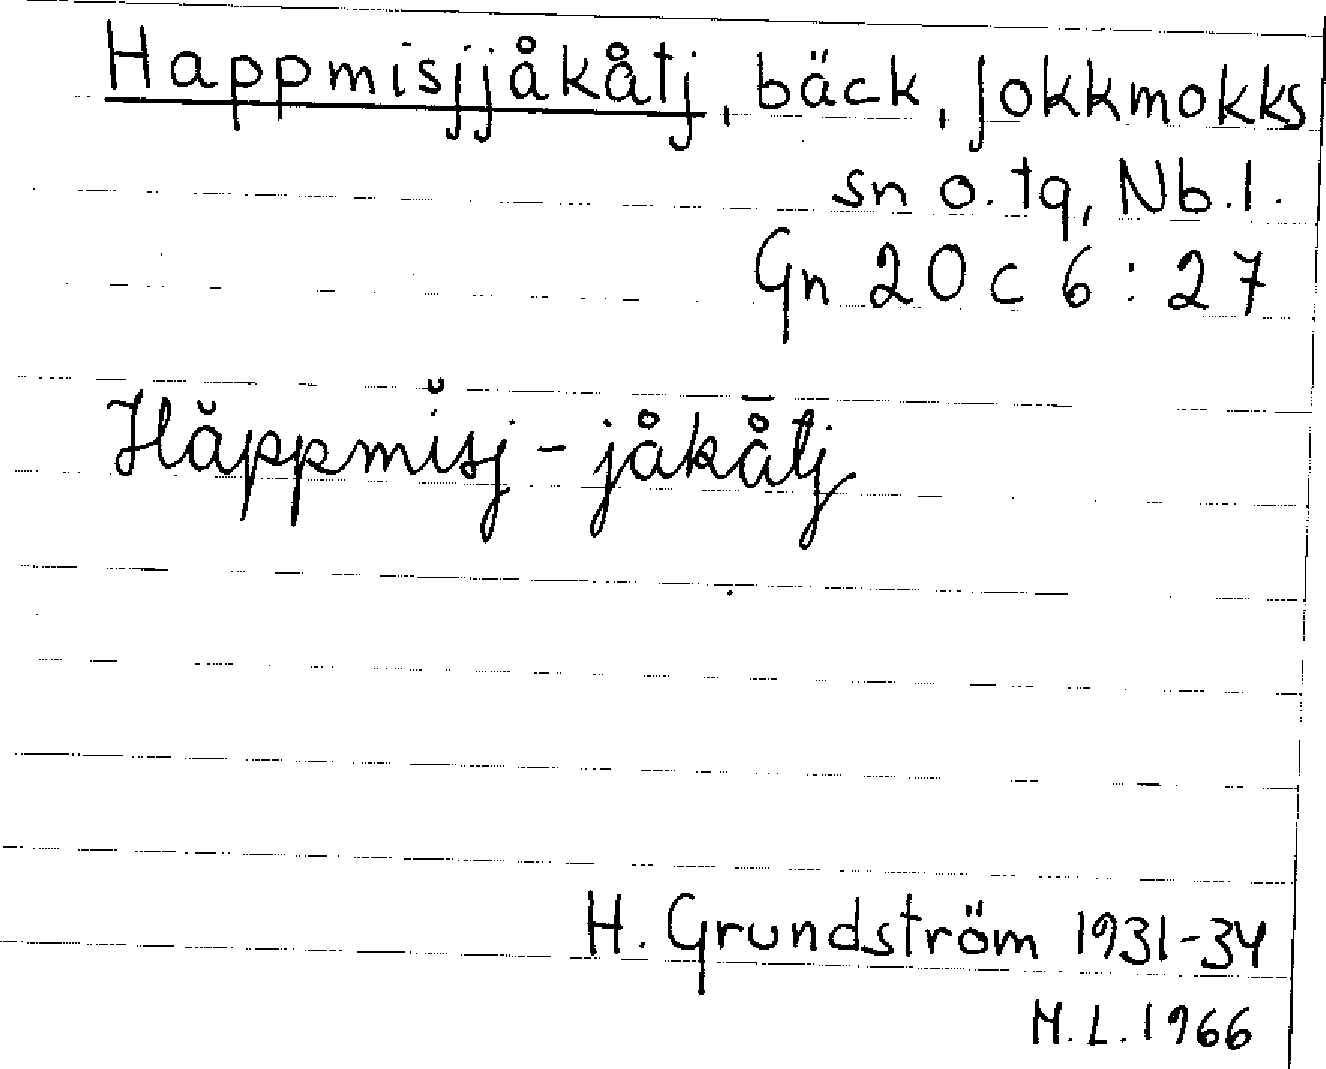 Happmisjjåkåtj, bäck, Jokkmokks
sn o. tg, Nb.l.
Gn 20 c 6 : 27
Hăppmĭsj-jåkå̄tj
H. Grundström 1931-34
M.L. 1966